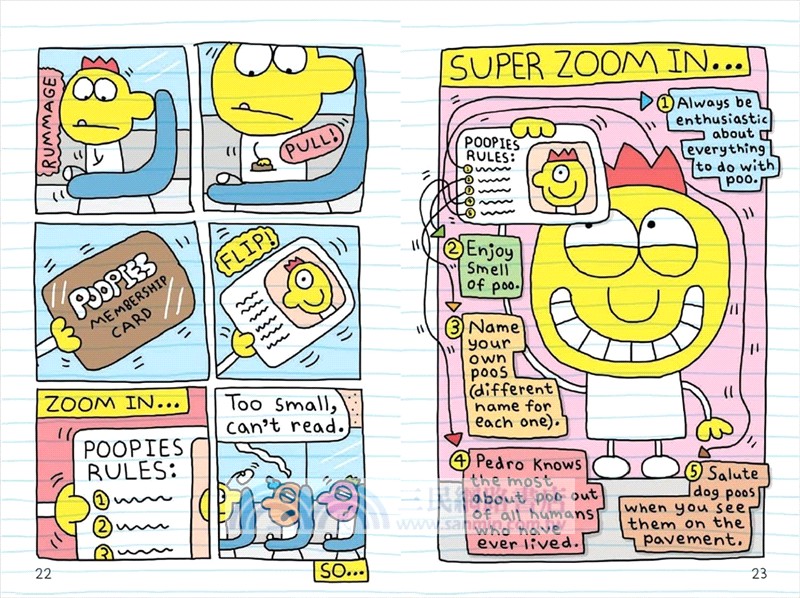 RUMMAGE
PULL!
POOPIES
MEMBERSHIP
CARD
FLIP!
ZOOM IN...
POOPIES
RULES:
1
2
3
Too small,
can't read.
SO...
22
SUPER ZOOM IN...
POOPIES
RULES:
1
2
3
4
5
1 Always be
enthusiastic
about
everything
to do with
poo.
2 Enjoy
smell
of poo.
3 Name
your
own
poos
(different
name for
each one).
4 Pedro knows
the most
about poo out
of all humans
who have
ever lived.
5 Salute
dog poos
when you see
them on the
pavement.
三民網路書店
www.sanmin.com.tw
23